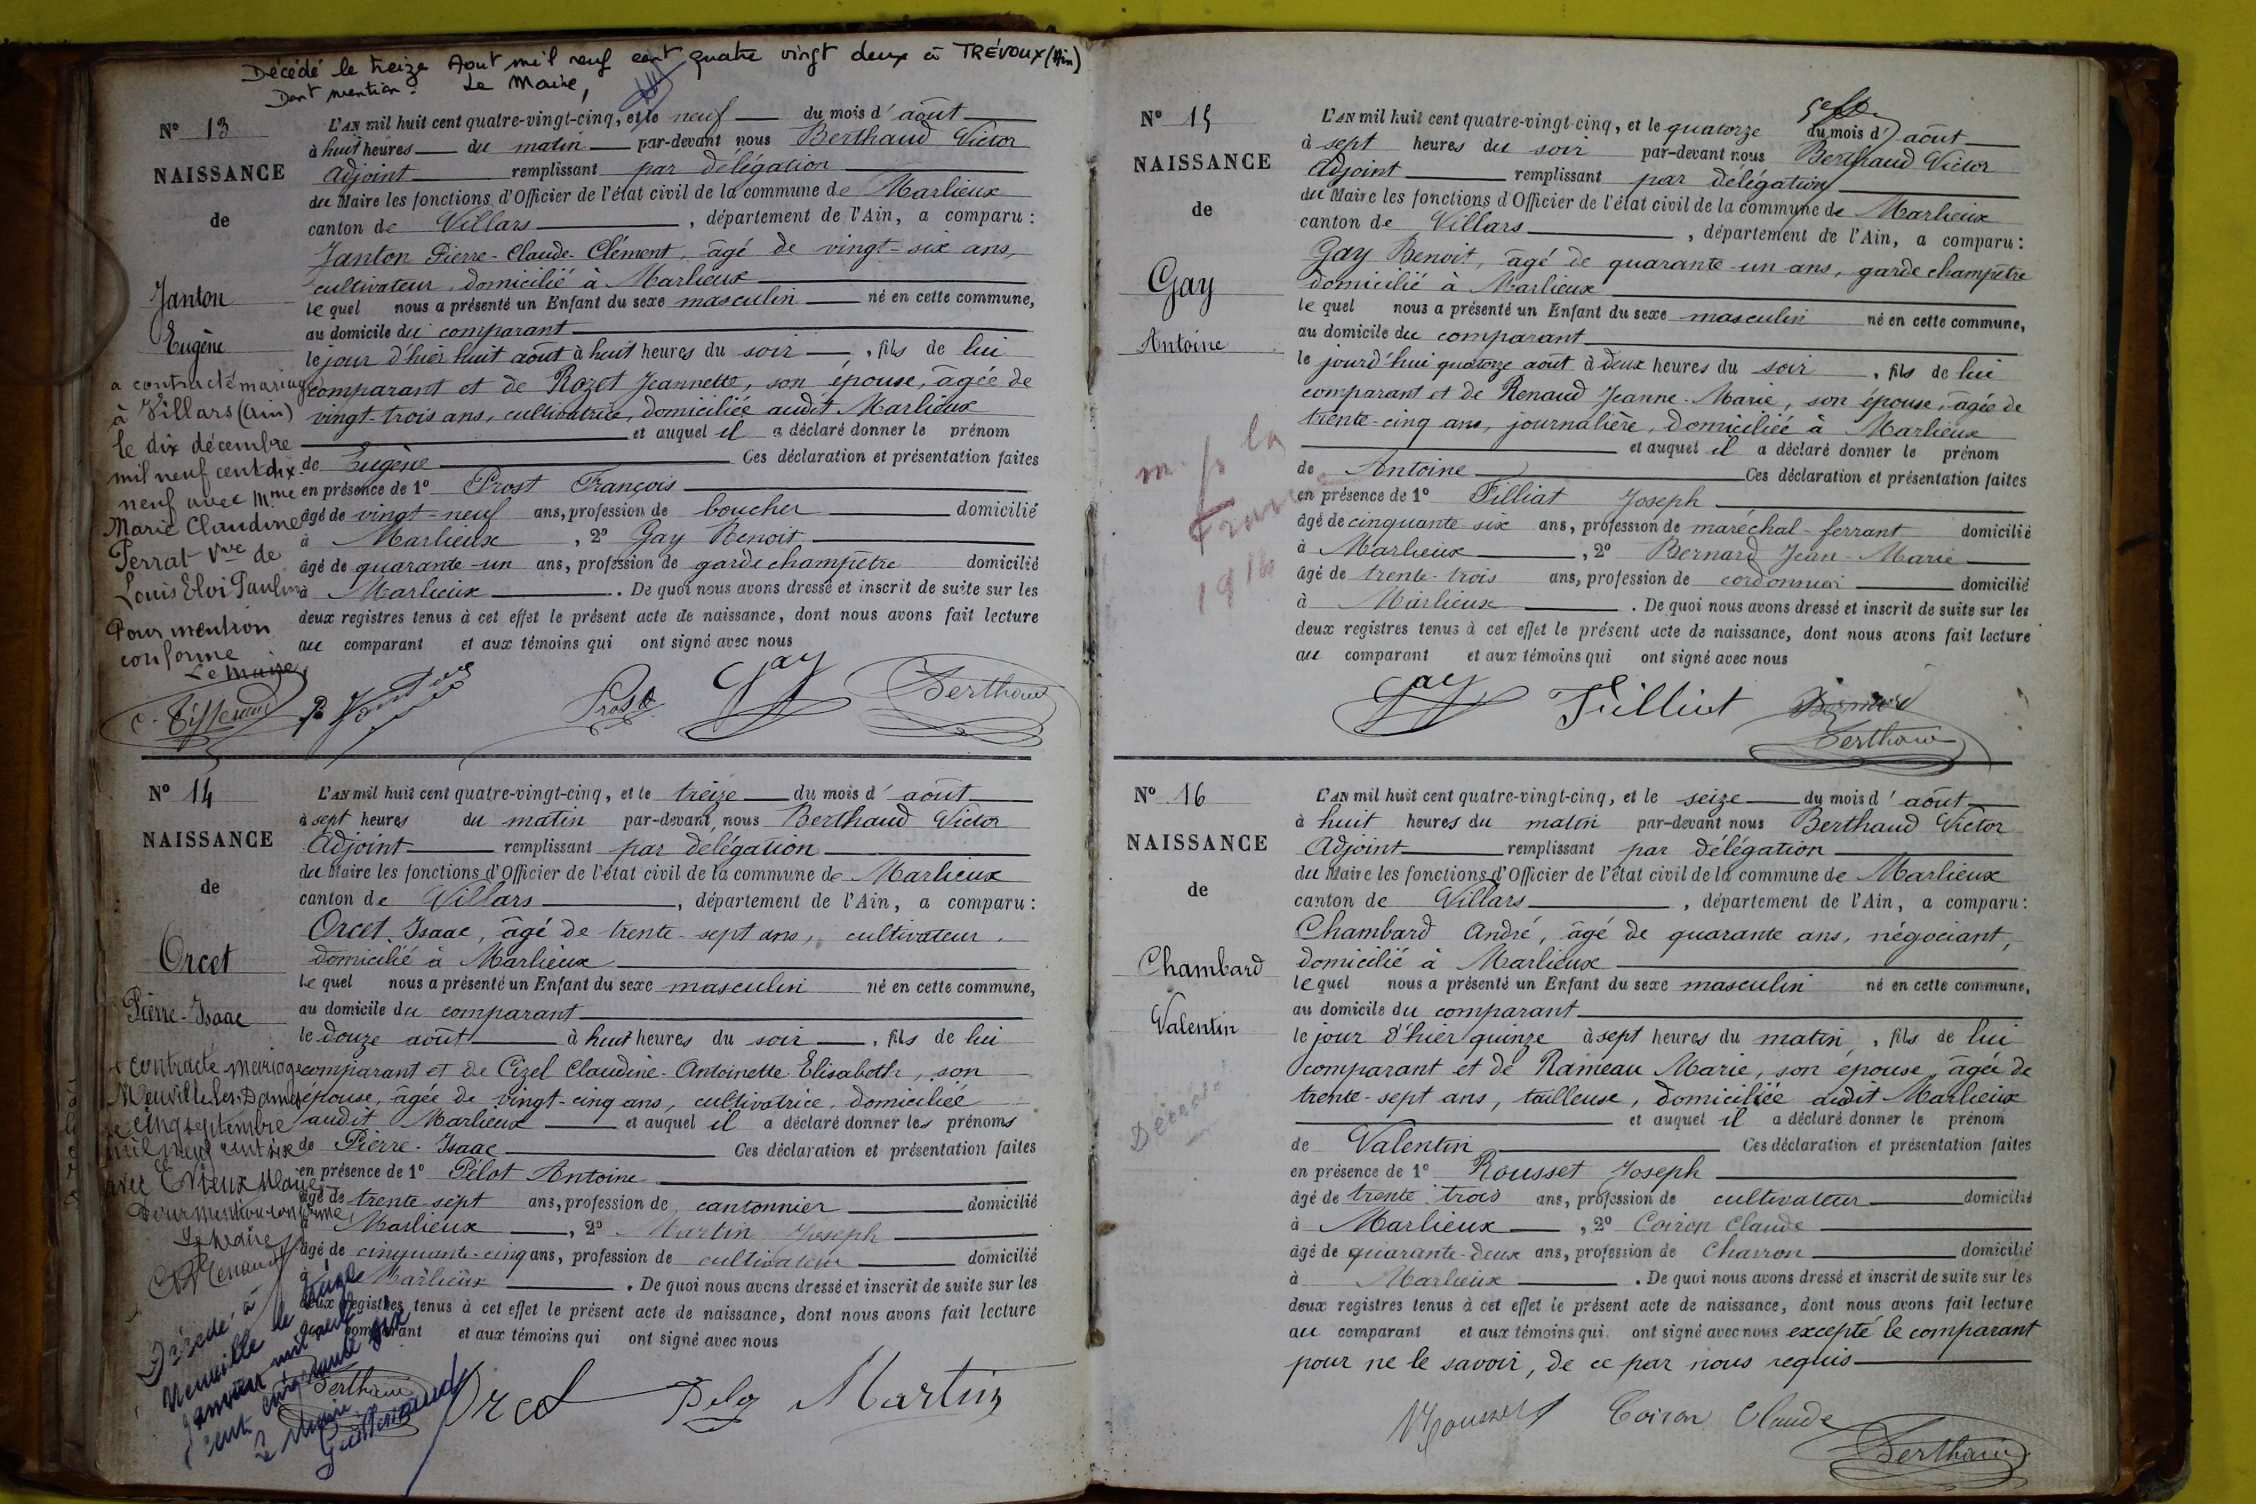 Décédé le treize Aout mil neuf cent quatre vingt deux à TRÉVOUX (Ain)
Dont mention. Le Maire,
N° 13
NAISSANCE
de
Janton
Eugène
a contracté mariage
à Villars (Ain)
le dix décembre
mil neuf cent dix
neuf avec Mme
Marie Claudine
Perrat Vve de
Louis Eloi Paulin
Pour mention
conforme
Le Maire,
C. Tisserand
L'AN mil huit cent quatre-vingt-cinq, et le neuf du mois d'août
à huit heures du matin par-devant nous Berthaud Victor
Adjoint remplissant par délégation
du Maire les fonctions d'Officier de l'état civil de la commune de Marlieux
canton de Villars, département de l'Ain, a comparu :
Janton Pierre-Claude-Clément, âgé de vingt-six ans,
cultivateur, domicilié à Marlieux
lequel nous a présenté un Enfant du sexe masculin né en cette commune,
au domicile du comparant
le jour d'hier huit août à huit heures du soir, fils de lui
comparant et de Rozet Jeannette, son épouse, âgée de
vingt-trois ans, cultivatrice, domiciliée audit Marlieux
et auquel il a déclaré donner le prénom
de Eugène Ces déclaration et présentation faites
en présence de 1° Prost François
âgé de vingt-neuf ans, profession de boucher domicilié
à Marlieux, 2° Gay Benoit
âgé de quarante-un ans, profession de garde champêtre domicilié
à Marlieux. De quoi nous avons dressé et inscrit de suite sur les
deux registres tenus à cet effet le présent acte de naissance, dont nous avons fait lecture
au comparant et aux témoins qui ont signé avec nous
P. Janton Prost Gay Berthaud
N° 14
NAISSANCE
de
Orcet
Pierre-Isaac
a contracté mariage
Neuville-les-Dames
le cinq septembre
mil neuf cent six
avec
Pour mention conforme,
Le Maire
Décédé à
Neuville le treize
janvier mil neuf
cent cinquante six
Le Maire
L'AN mil huit cent quatre-vingt-cinq, et le treize du mois d'août
à sept heures du matin par-devant nous Berthaud Victor
Adjoint remplissant par délégation
du Maire les fonctions d'Officier de l'état civil de la commune de Marlieux
canton de Villars, département de l'Ain, a comparu :
Orcet Isaac, âgé de trente-sept ans, cultivateur,
domicilié à Marlieux
lequel nous a présenté un Enfant du sexe masculin né en cette commune,
au domicile du comparant
le douze août à huit heures du soir, fils de lui
comparant et de Cizel Claudine-Antoinette Elisabeth, son
épouse, âgée de vingt-cinq ans, cultivatrice, domiciliée
audit Marlieux et auquel il a déclaré donner les prénoms
de Pierre-Isaac Ces déclaration et présentation faites
en présence de 1° Pélot Antoine
âgé de trente-sept ans, profession de cantonnier domicilié
à Marlieux, 2° Martin Joseph
âgé de cinquante-cinq ans, profession de cultivateur domicilié
à Marlieux. De quoi nous avons dressé et inscrit de suite sur les
deux registres tenus à cet effet le présent acte de naissance, dont nous avons fait lecture
au comparant et aux témoins qui ont signé avec nous
Berthaud Orcet Martin
N° 15
NAISSANCE
de
Gay
Antoine
m. p. la
France
1914
L'AN mil huit cent quatre-vingt-cinq, et le quatorze du mois d'août
à sept heures du soir par-devant nous Berthaud Victor
Adjoint remplissant par délégation
du Maire les fonctions d'Officier de l'état civil de la commune de Marlieux
canton de Villars, département de l'Ain, a comparu :
Gay Benoit, âgé de quarante-un ans, garde champêtre
domicilié à Marlieux
lequel nous a présenté un Enfant du sexe masculin né en cette commune,
au domicile du comparant
le jourd'hui quatorze août à deux heures du soir, fils de lui
comparant et de Renaud Jeanne-Marie, son épouse, âgée de
trente-cinq ans, journalière, domiciliée à Marlieux
et auquel il a déclaré donner le prénom
de Antoine Ces déclaration et présentation faites
en présence de 1° Filliat Joseph
âgé de cinquante six ans, profession de maréchal-ferrant domicilié
à Marlieux, 2° Bernard Jean-Marie
âgé de trente-trois ans, profession de cordonnier domicilié
à Marlieux. De quoi nous avons dressé et inscrit de suite sur les
deux registres tenus à cet effet le présent acte de naissance, dont nous avons fait lecture
au comparant et aux témoins qui ont signé avec nous
Gay Filliat Bernard
Berthaud
N° 16
NAISSANCE
de
Chambard
Valentin
Décédé
L'AN mil huit cent quatre-vingt-cinq, et le seize du mois d'août
à huit heures du matin par-devant nous Berthaud Victor
Adjoint remplissant par délégation
du Maire les fonctions d'Officier de l'état civil de la commune de Marlieux
canton de Villars, département de l'Ain, a comparu :
Chambard André, âgé de quarante ans, négociant,
domicilié à Marlieux
lequel nous a présenté un Enfant du sexe masculin né en cette commune,
au domicile du comparant
le jour d'hier quinze à sept heures du matin, fils de lui
comparant et de Rameau Marie, son épouse, âgée de
trente-sept ans, tailleuse, domiciliée audit Marlieux
et auquel il a déclaré donner le prénom
de Valentin Ces déclaration et présentation faites
en présence de 1° Rousset Joseph
âgé de trente trois ans, profession de cultivateur domicilié
à Marlieux, 2° Coiron Claude
âgé de quarante-deux ans, profession de Charron domicilié
à Marlieux. De quoi nous avons dressé et inscrit de suite sur les
deux registres tenus à cet effet le présent acte de naissance, dont nous avons fait lecture
au comparant et aux témoins qui ont signé avec nous excepté le comparant
pour ne le savoir, de ce par nous requis
Rousset Coiron Claude
Berthaud